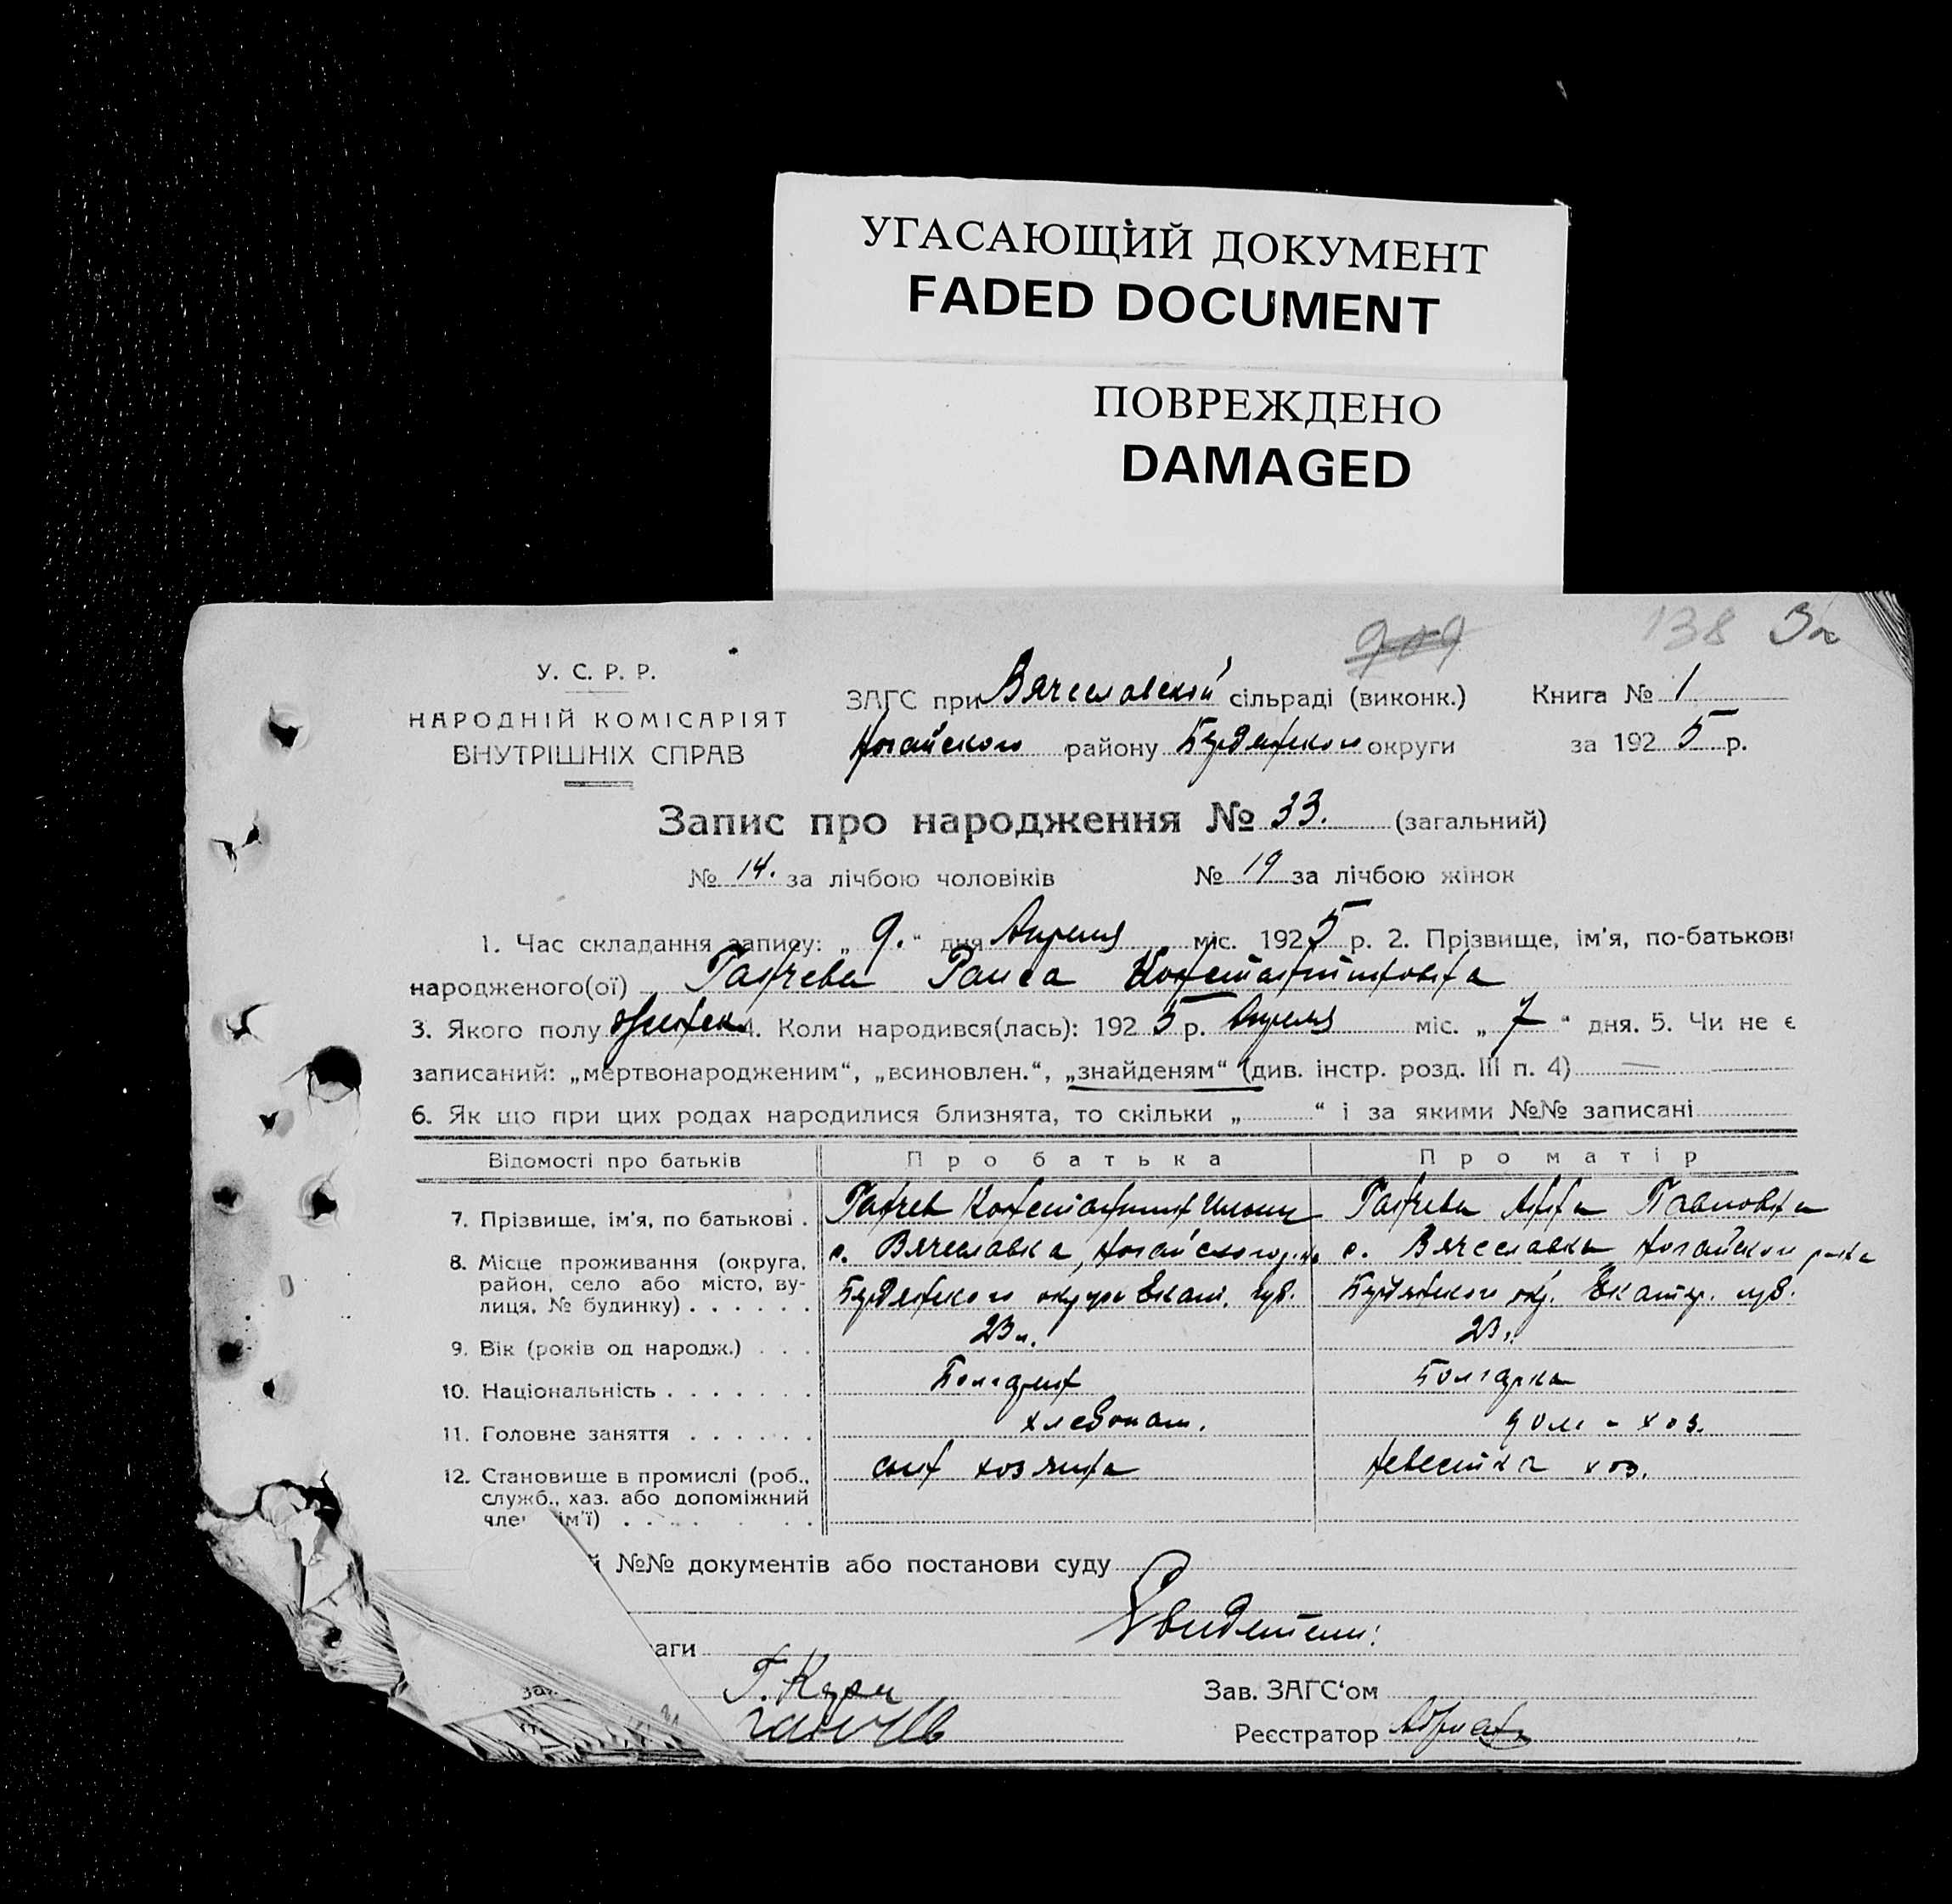 УГАСАЮЩИЙ ДОКУМЕНТ
FADED DOCUMENT
ПОВРЕЖДЕНО
DAMAGED
909
138
У. С. Р. Р.
НАРОДНІЙ КОМІСАРІЯТ
ВНУТРІШНІХ СПРАВ
ЗАГС при Вячеславской сільраді (виконк.) Книга № 1
Ногайского району Бердянского округи за 1925 р.
Запис про народження № 33. (загальний)
№ 14. за лічбою чоловіків № 19 за лічбою жінок
1. Час складання запису: „ 9. “ дня Апреля міс. 1925 р. 2. Прізвище, ім'я, по-батькові
народженого(ої) Ганчева Раиса Константиновна
3. Якого полу женск. 4. Коли народився(лась): 1925 р. Апреля міс. „ 7 “ дня. 5. Чи не є
записаний: „мертвонародженим“, „всиновлен.“, „знайденям“ (див. інстр. розд. III п. 4) —
6. Як що при цих родах народилися близнята, то скільки „ “ і за якими №№ записані
Відомості про батьків Про батька Про матір
7. Прізвище, ім'я, по батькові . Ганчев Константин Ганчева Анна Павловна
8. Місце проживання (округа, с. Вячеславка, Ногайского с. Вячеславка Ногайского
район, село або місто, ву-
лиця, № будинку) . . . . . . Бердянского округа Екат. губ. Бердянского окр. Екатер. губ.
9. Вік (років од народж.) . . . 23 23
10. Національність . . . . . . . Болгарин Болгарка
11. Головне заняття . . . . . . хлебопаш. дом-хоз.
12. Становище в промислі (роб., сын хозяина невестка хоз.
служб., хаз. або допоміжний
член ім'ї) . . . . . .
й №№ документів або постанови суду
Свидетели:
аги
Г. Кури
Зав. ЗАГС'ом
Реєстратор